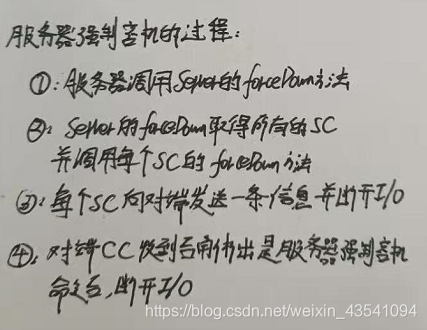 服务器强制宕机的过程:
①:服务器调用Server的forceDown方法
②:Server的forceDown取得所有的SC
并调用每个SC的forceDown方法
③:每个SC向对端发送一条信息并断开I/O
④:对端CC收到后解析出是服务器强制宕机
命令后,断开I/O
https://blog.csdn.net/weixin_43541094